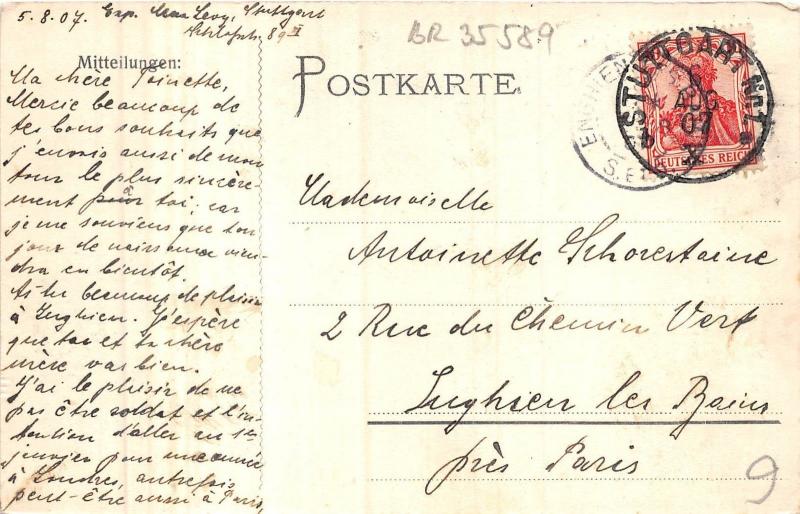 5.8.07. Exp. Max Levy, Stuttgart
89 II
BR 35589
Mitteilungen:
POSTKARTE.
STUTTGART Nr. 1
AUG
07
DEUTSCHES REICH
ENGHIEN
Ma chère Toinette,
Mercie beaucoup de
tes bons souhaits que
j'envois aussi de mon
tour le plus sincère-
ment pour à toi, car
je me souviens que ton
jour de naissance vien-
dra en bientôt.
As tu beaucoup de plaisir
à Enghien. J'espère
que toi et ta chère
mère vas bien.
J'ai le plaisir de ne
pas être soldat et l'in-
tention d'aller au 1er
janvier pour une année
à Londres, autrefois
peut-être aussi à Paris,
Mademoiselle
Antoinette Schorestaine
2 Rue du Chemin Vert
Enghien les Bains
près Paris
9